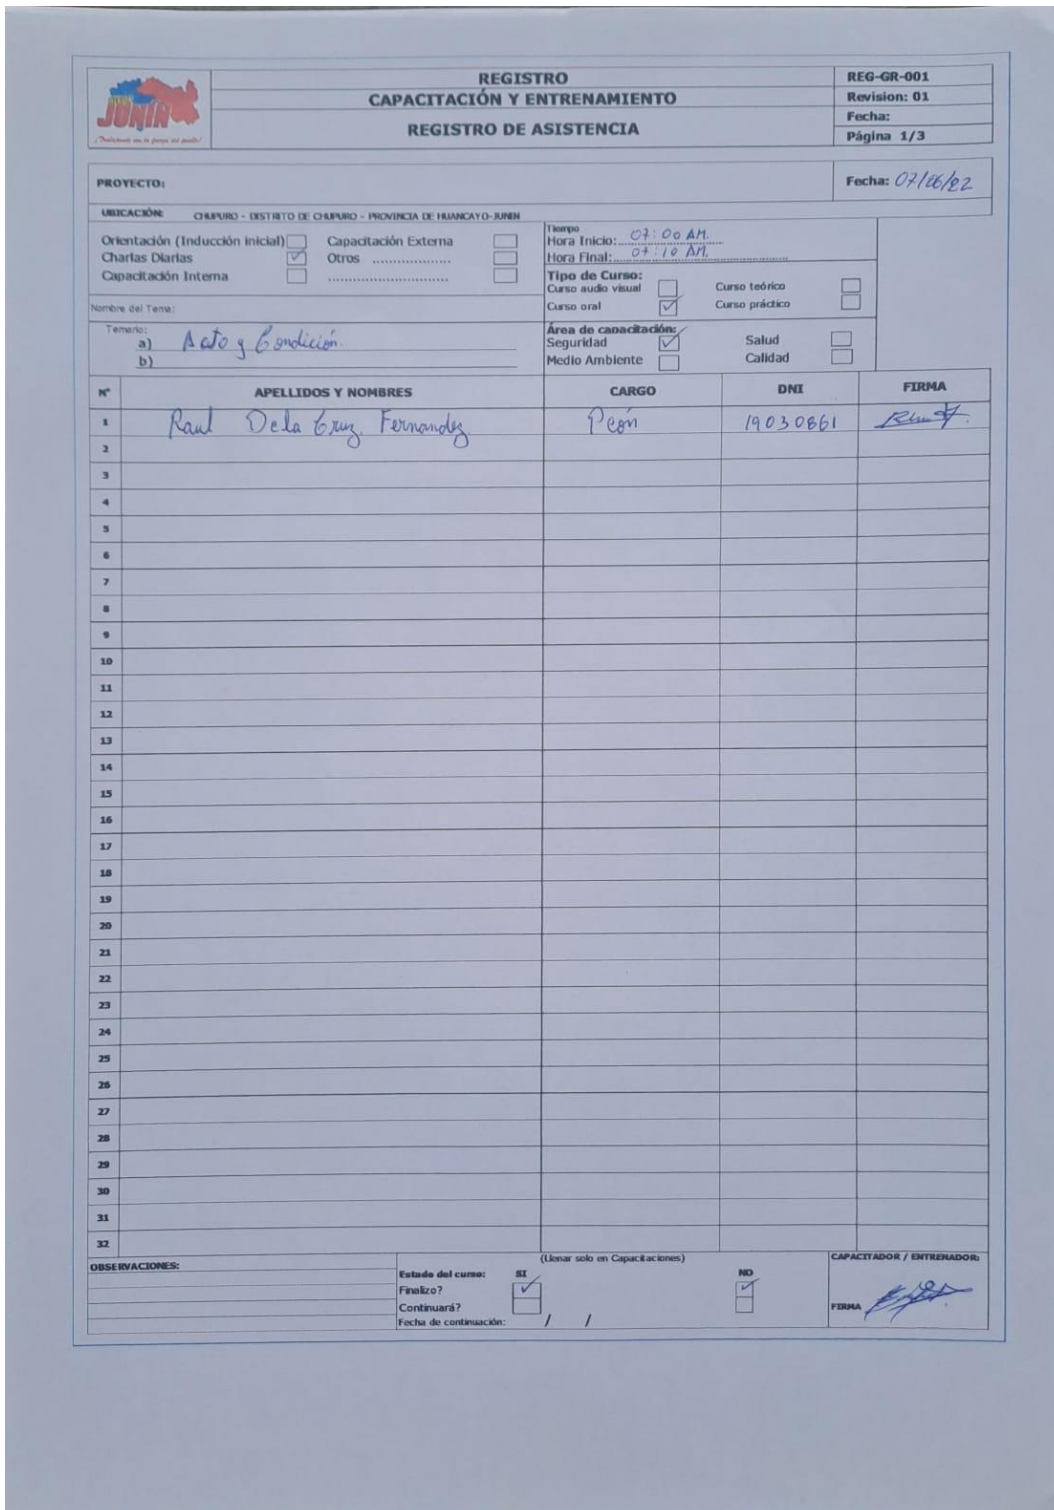 JUNIN
¡Trabajando con la fuerza del pueblo!
REGISTRO
CAPACITACIÓN Y ENTRENAMIENTO
REGISTRO DE ASISTENCIA
REG-GR-001
Revision: 01
Fecha:
Página 1/3
PROYECTO:
Fecha: 07/06/22
UBICACIÓN: CHUPURO - DISTRITO DE CHUPURO - PROVINCIA DE HUANCAYO-JUNIN
Orientación (Inducción inicial) Capacitación Externa
Charlas Diarias ✓ Otros ..................
Capacitación Interna ...........................
Tiempo
Hora Inicio: 07:00 AM.
Hora Final: 07:10 AM.
Tipo de Curso:
Curso audio visual Curso teórico
Curso oral ✓ Curso práctico
Nombre del Tema:
Temario:
a) Acto y Condición.
b)
Área de capacitación:
Seguridad ✓ Salud
Medio Ambiente Calidad
N° APELLIDOS Y NOMBRES CARGO DNI FIRMA
1 Raul De la Cruz Fernandez Peón 19030861
2
3
4
5
6
7
8
9
10
11
12
13
14
15
16
17
18
19
20
21
22
23
24
25
26
27
28
29
30
31
32
OBSERVACIONES:
(Llenar solo en Capacitaciones)
Estado del curso: SI NO
Finalizo? ✓ ✓
Continuará?
Fecha de continuación: / /
CAPACITADOR / ENTRENADOR:
FIRMA